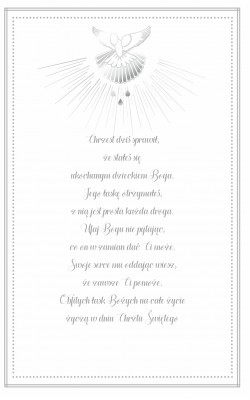 Chrzest dziś sprawił,
że stałeś się
ukochanym dzieckiem Boga.
Jego łaskę otrzymałeś,
z nią jest prosta każda droga.
Ufaj Bogu nie pytając,
co on w zamian dać Ci może.
Swoje serce mu oddając wiesz,
że zawsze Ci pomoże.
Obfitych łask Bożych na całe życie
życzą w dniu Chrztu Świętego